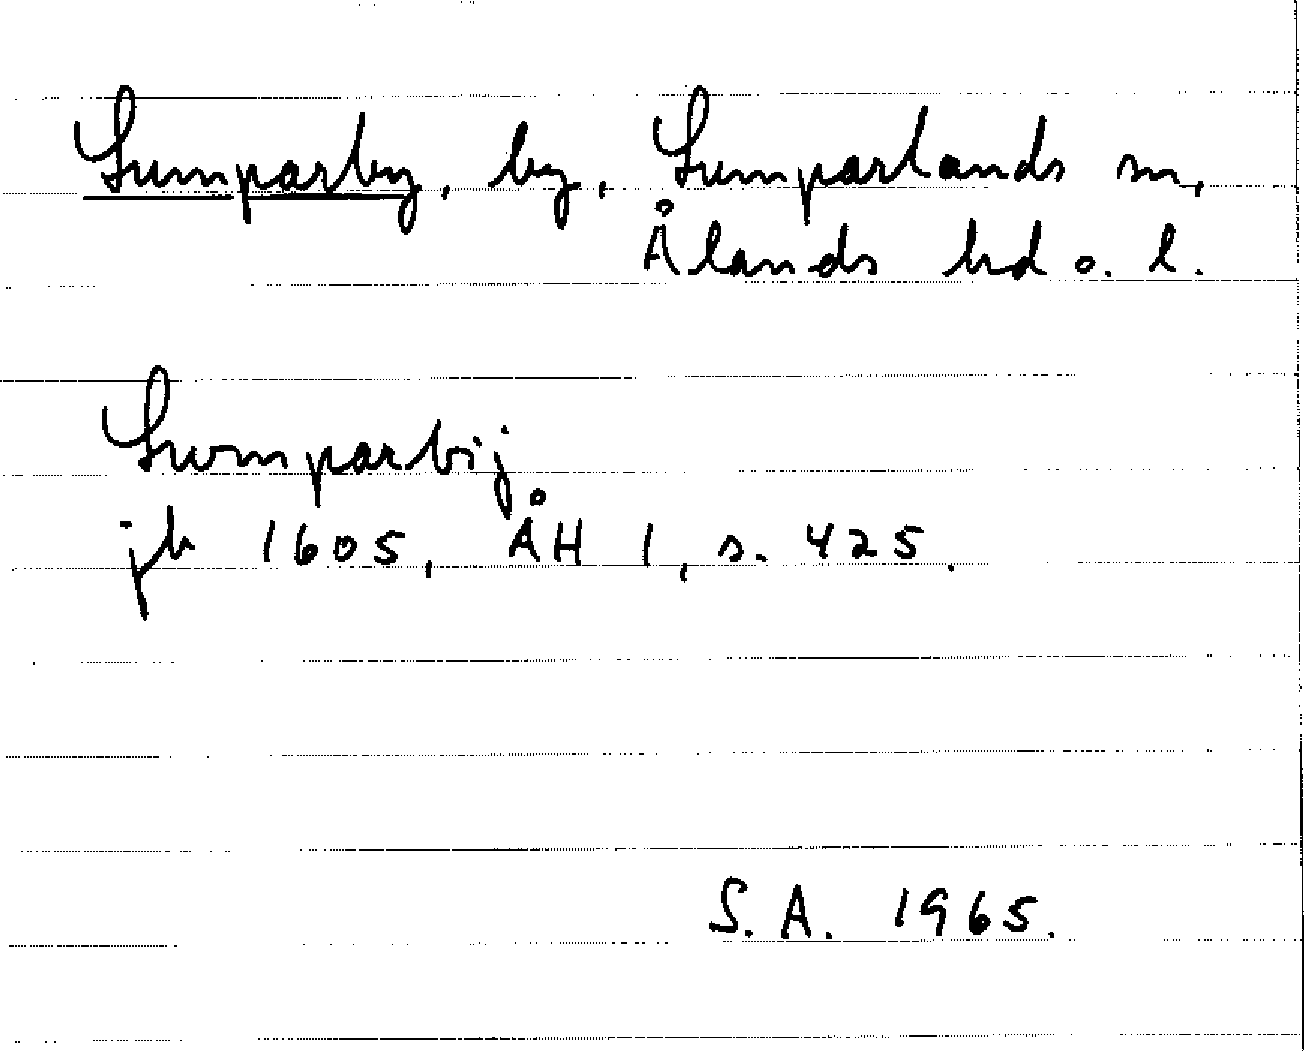 Lumparby, by, Lumparlands sn,
Ålands hd o. l.
Lumparbij
jb 1605, ÅH 1, s. 425.
S.A. 1965.